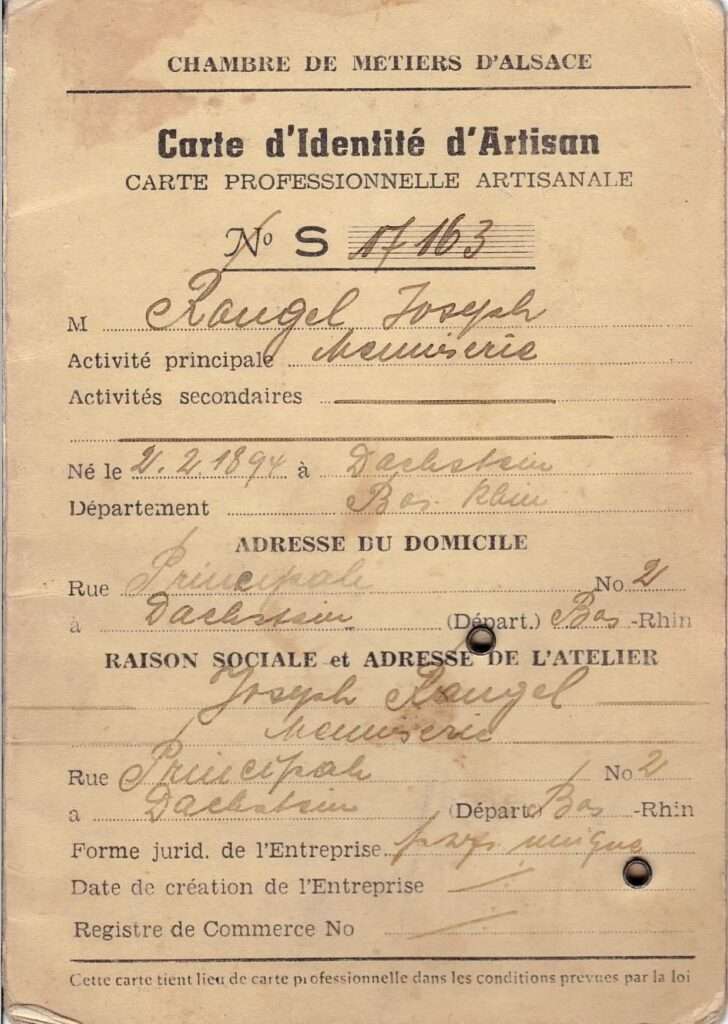 CHAMBRE DE MÉTIERS D'ALSACE
Carte d'Identité d'Artisan
CARTE PROFESSIONNELLE ARTISANALE
No S 17163
M Rangel Joseph
Activité principale Menuiserie
Activités secondaires
Né le 2.2.1894 à Dachstein
Département Bas-Rhin
ADRESSE DU DOMICILE
Rue Principale No 2
à Dachstein (Départ.) Bas-Rhin
RAISON SOCIALE et ADRESSE DE L'ATELIER
Joseph Rangel
Menuiserie
Rue Principale No 2
a Dachstein (Départ. Bas-Rhin
Forme jurid. de l'Entreprise unique
Date de création de l'Entreprise
Registre de Commerce No
Cette carte tient lieu de carte professionnelle dans les conditions prevues par la loi